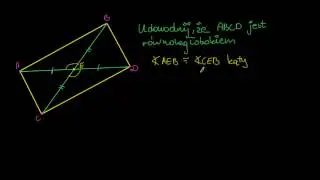 B
Udowodnij, że ABCD jest
równoległobokiem
A E D
∢AEB = ∢CEB kąty
C